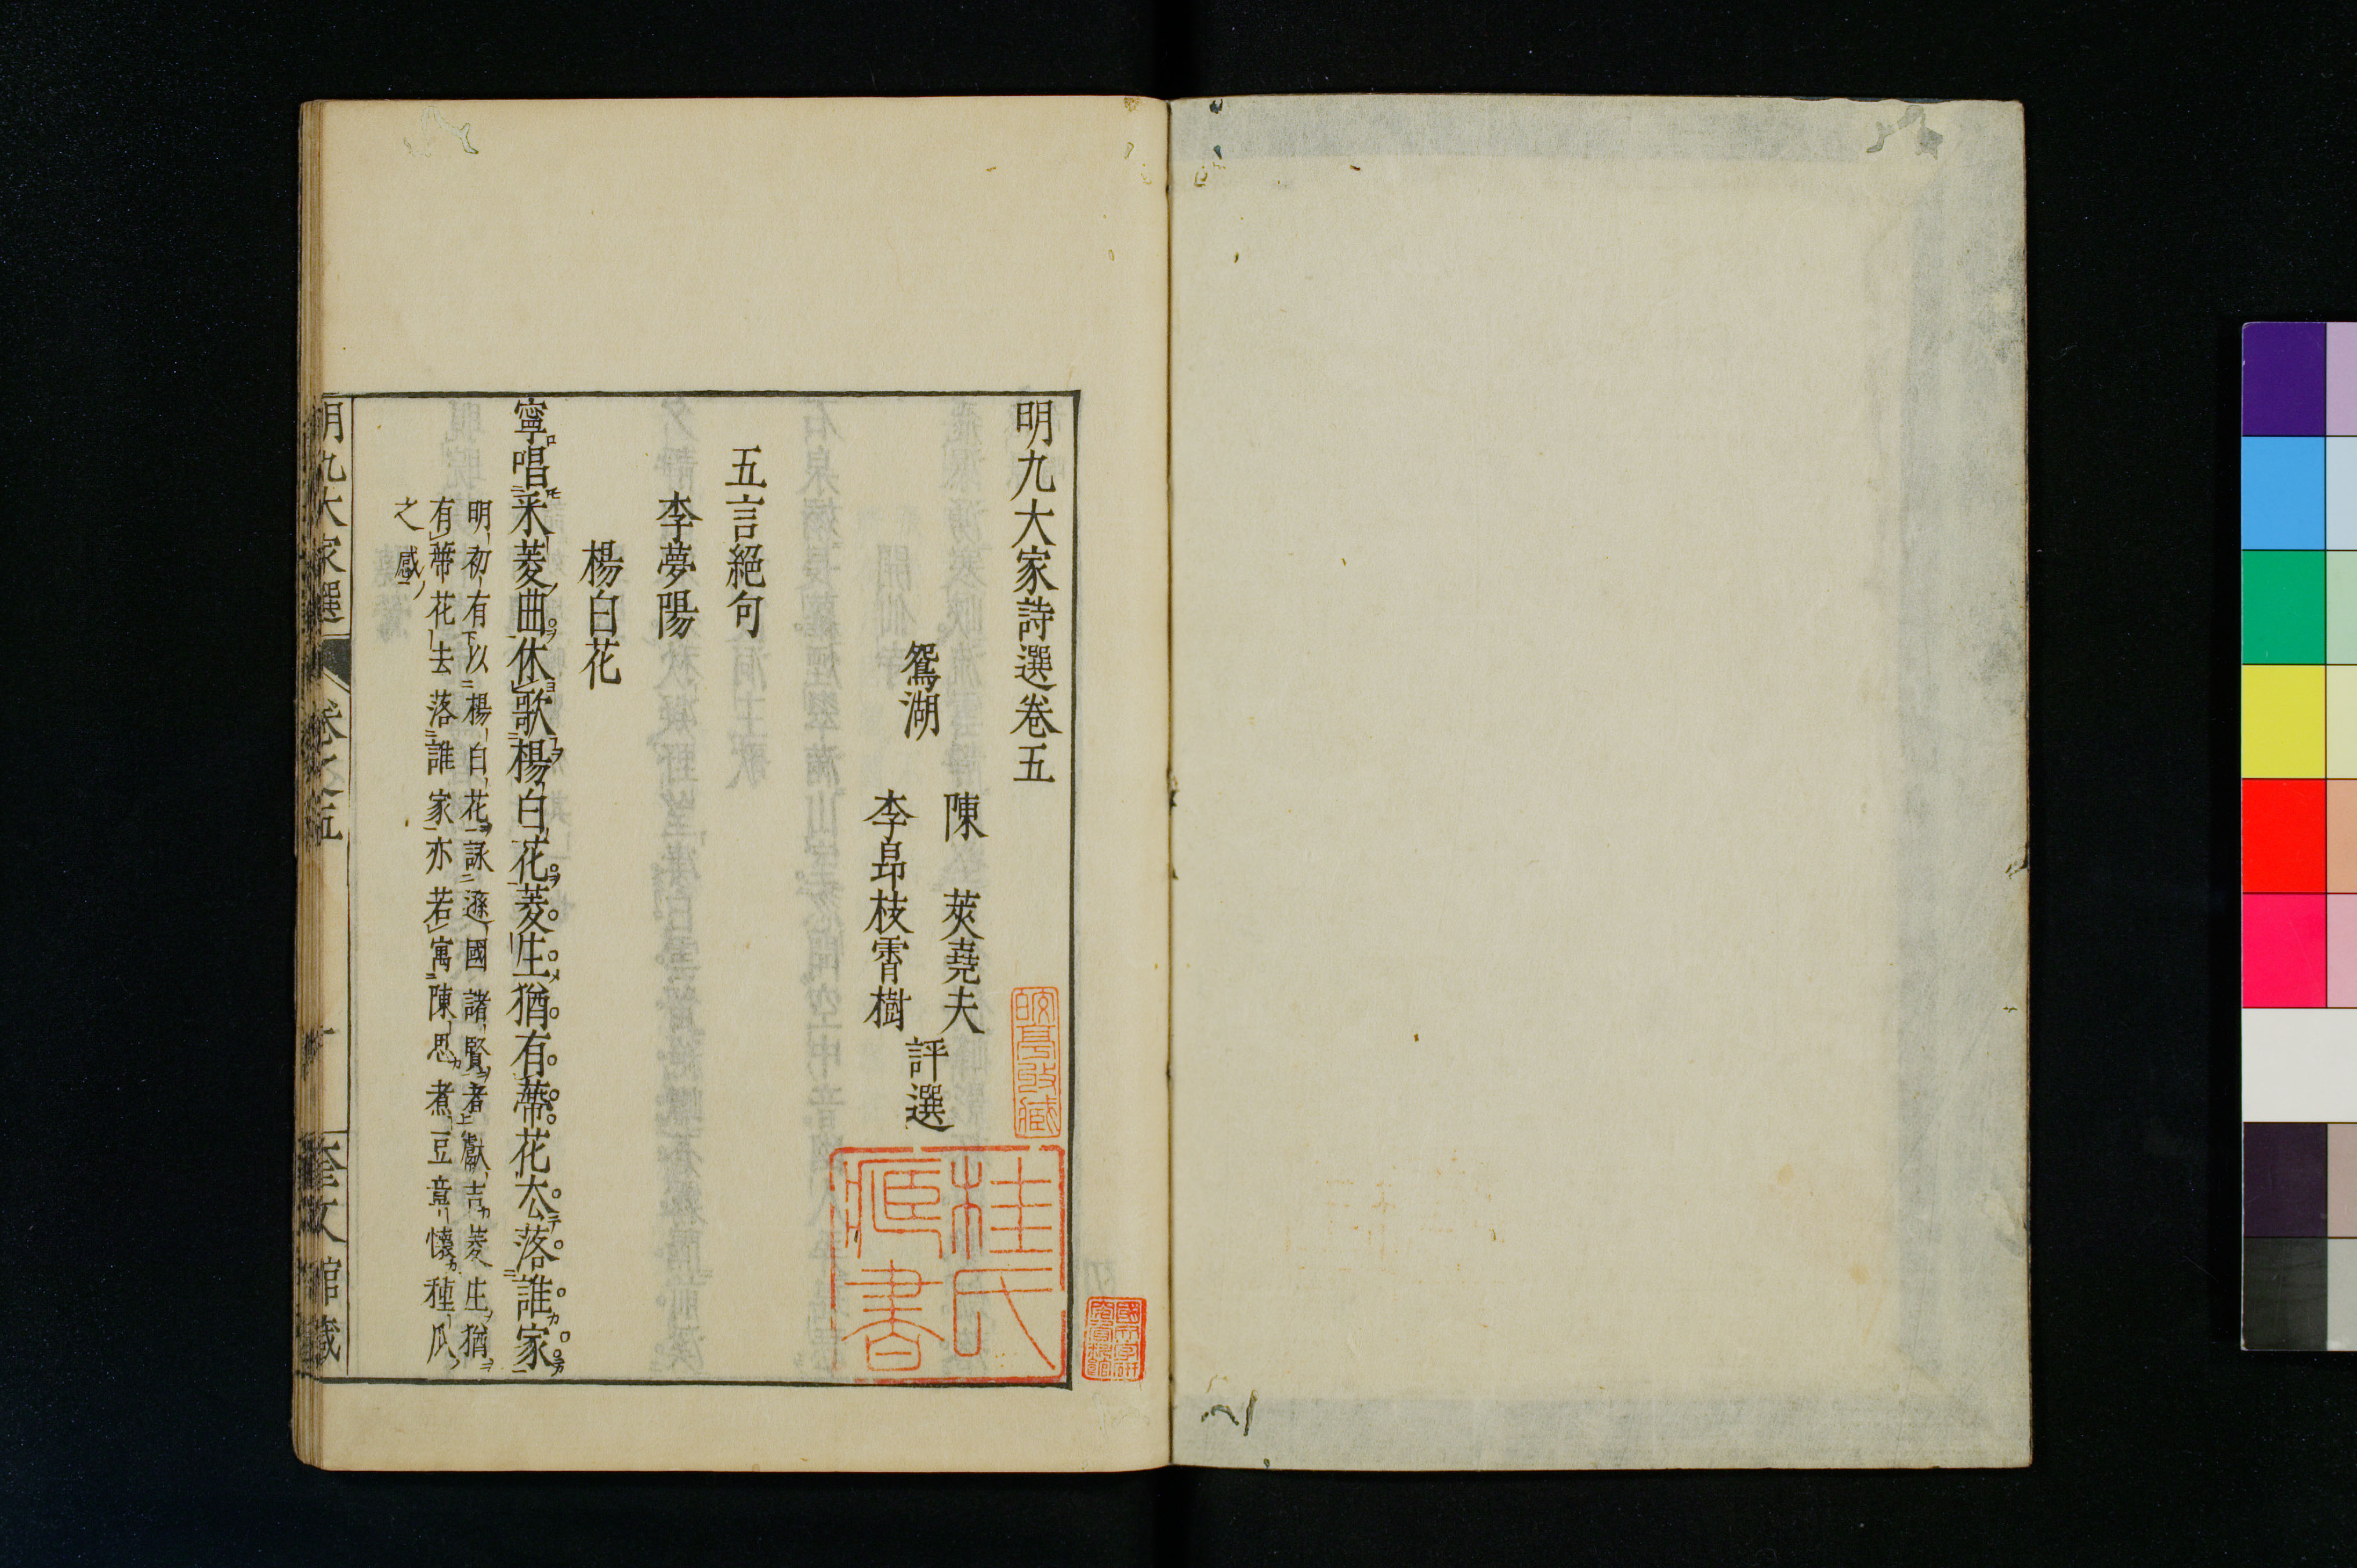 明九大家詩選卷五
陳　莢堯夫
鴛湖　　評選
李昻枝霄樹
五言絕句
李夢陽
楊白花
寧唱釆菱曲休歌楊白花菱生猶有蔕花去落誰家
明初有以楊白花詠遜國諸賢者獻吉菱生猶
有蔕花去落誰家亦若寓陳思煮豆意懷種瓜
之感
明九大家選　卷之五　一　奎文館藏
桂氏
臧書
國文學研
究資料館